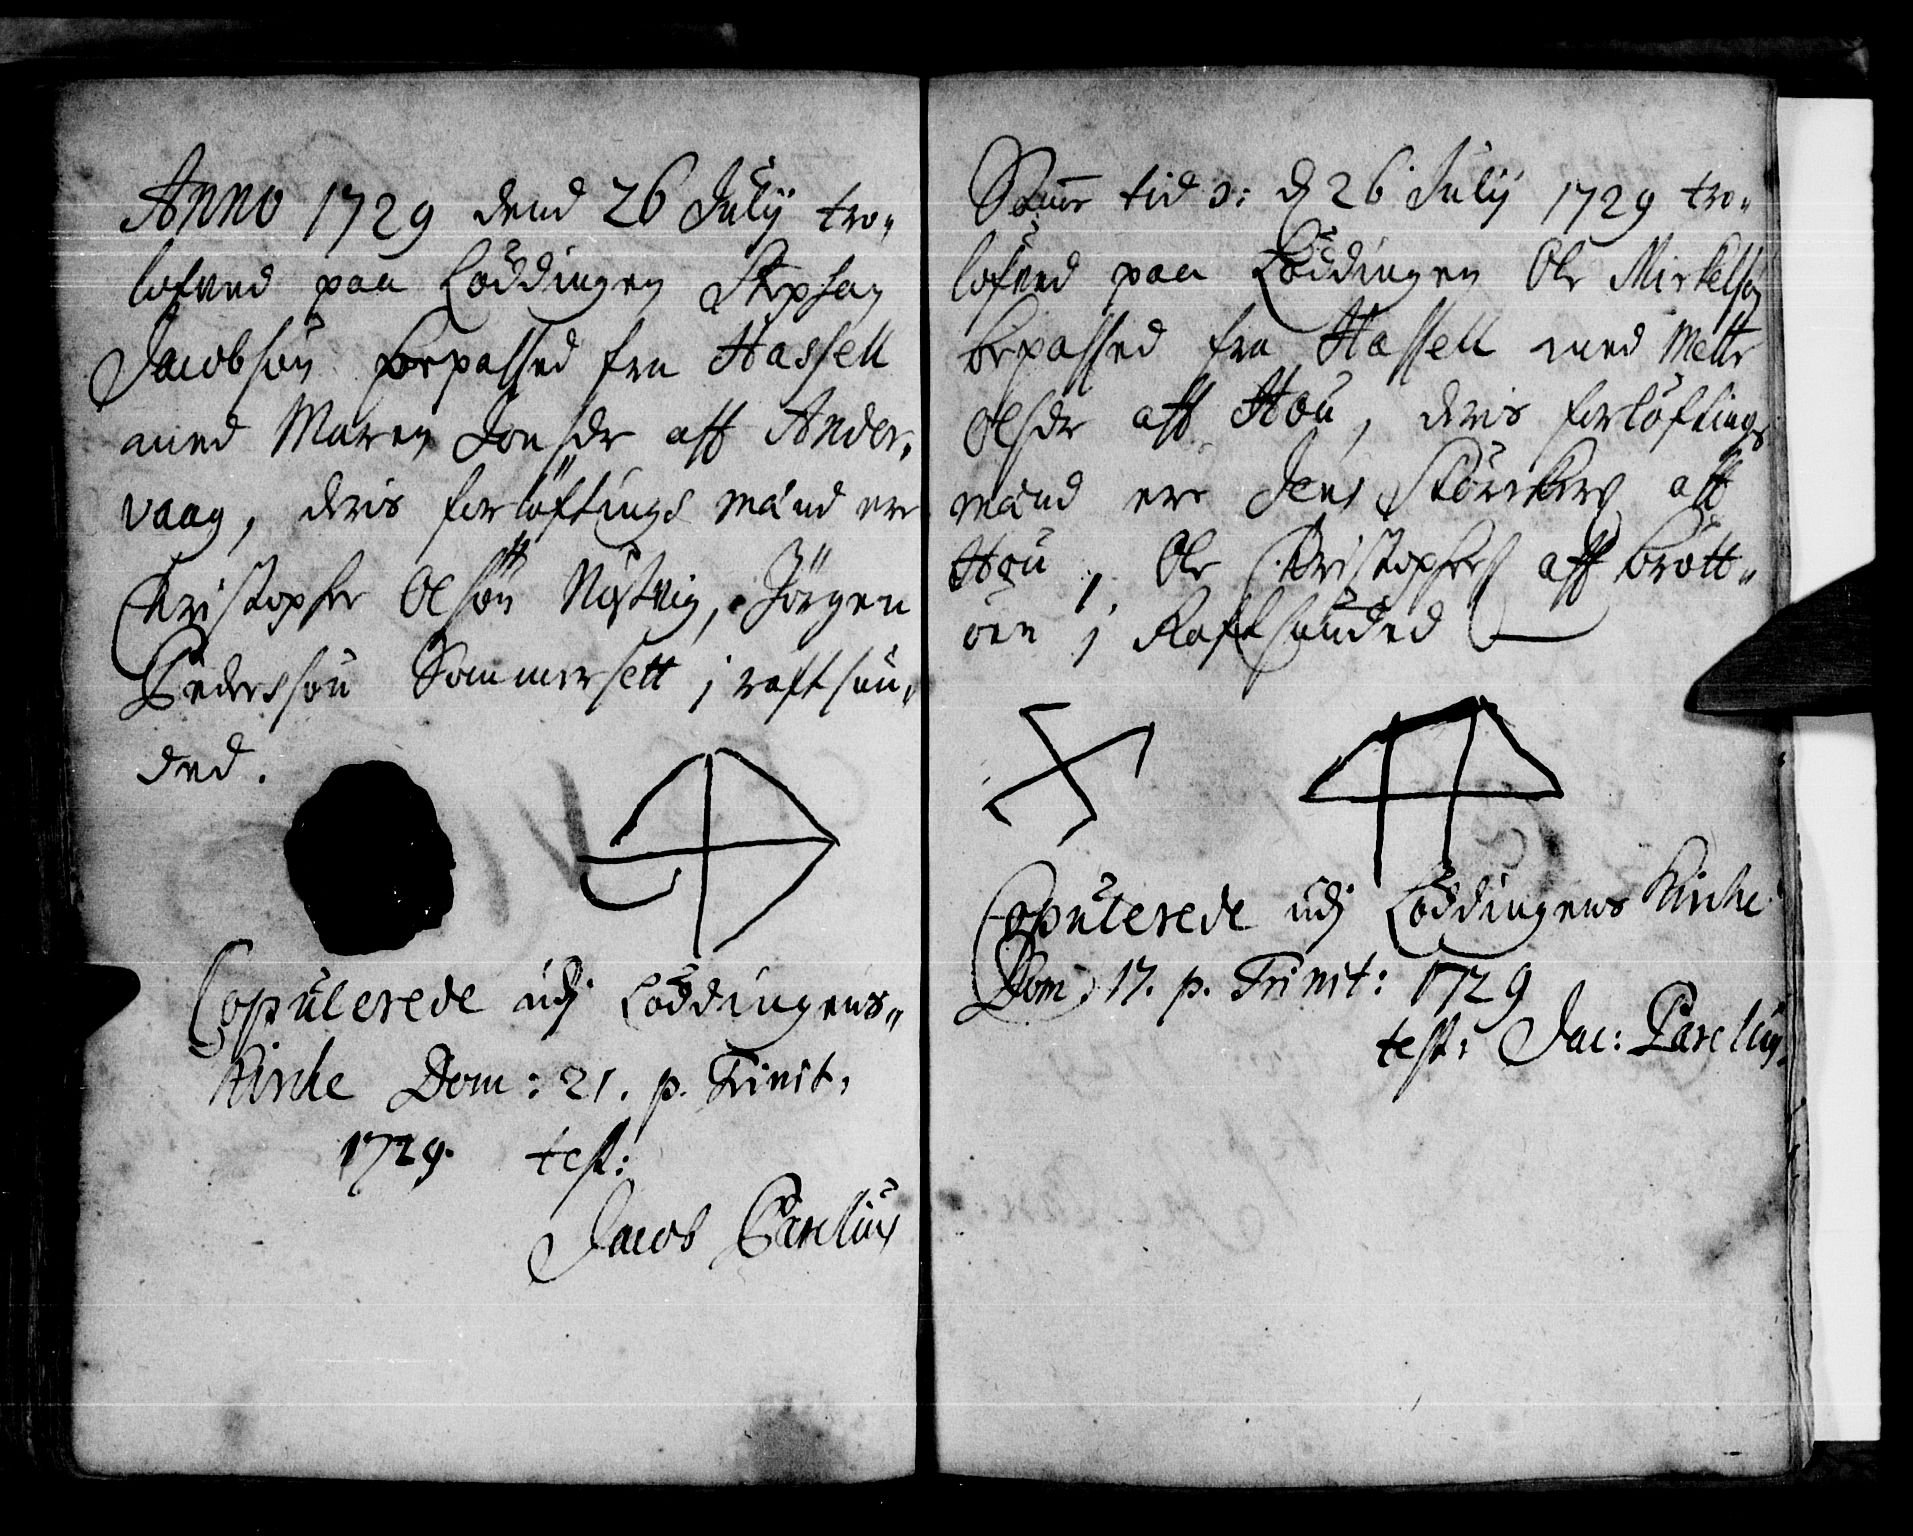 Anno 1729 dend 26 Julij tro„
lofved paa Löddingen Stephan
Jacobsøn forpassed fra Hassell
med Maren Jonsdr aff Ander„
vaag, deris forlöftings mænd ere
Christopher Olsøn Nøstvig, Jörgen
Pederssøn Sommersett j raftsun„
ded.
Copulerede udj Löddingens„
Kirche Dom: 21. p. Trinit:
1729. test:
Jacob Parelius
Samme tid ɔ: d 26 Julij 1729 tro„
lofved paa Löddingen Ole Mickelsøn
forpassed fra Hassell med Mette
Olsdr aff Hou, deris forlöftings
mænd ere Jens Störckers aff
Hou, Ole Christophers aff Brott„
öen j Raftsunded
Copulerede udj Löddingens Kirche
Dom: 17. p. Trinit: 1729
test: Jac: Parelius.